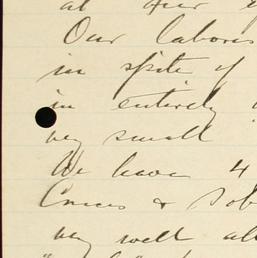 at our
Our labores
in spite of
in entirely
very small
We have 4
Cruces & Sob
very well al